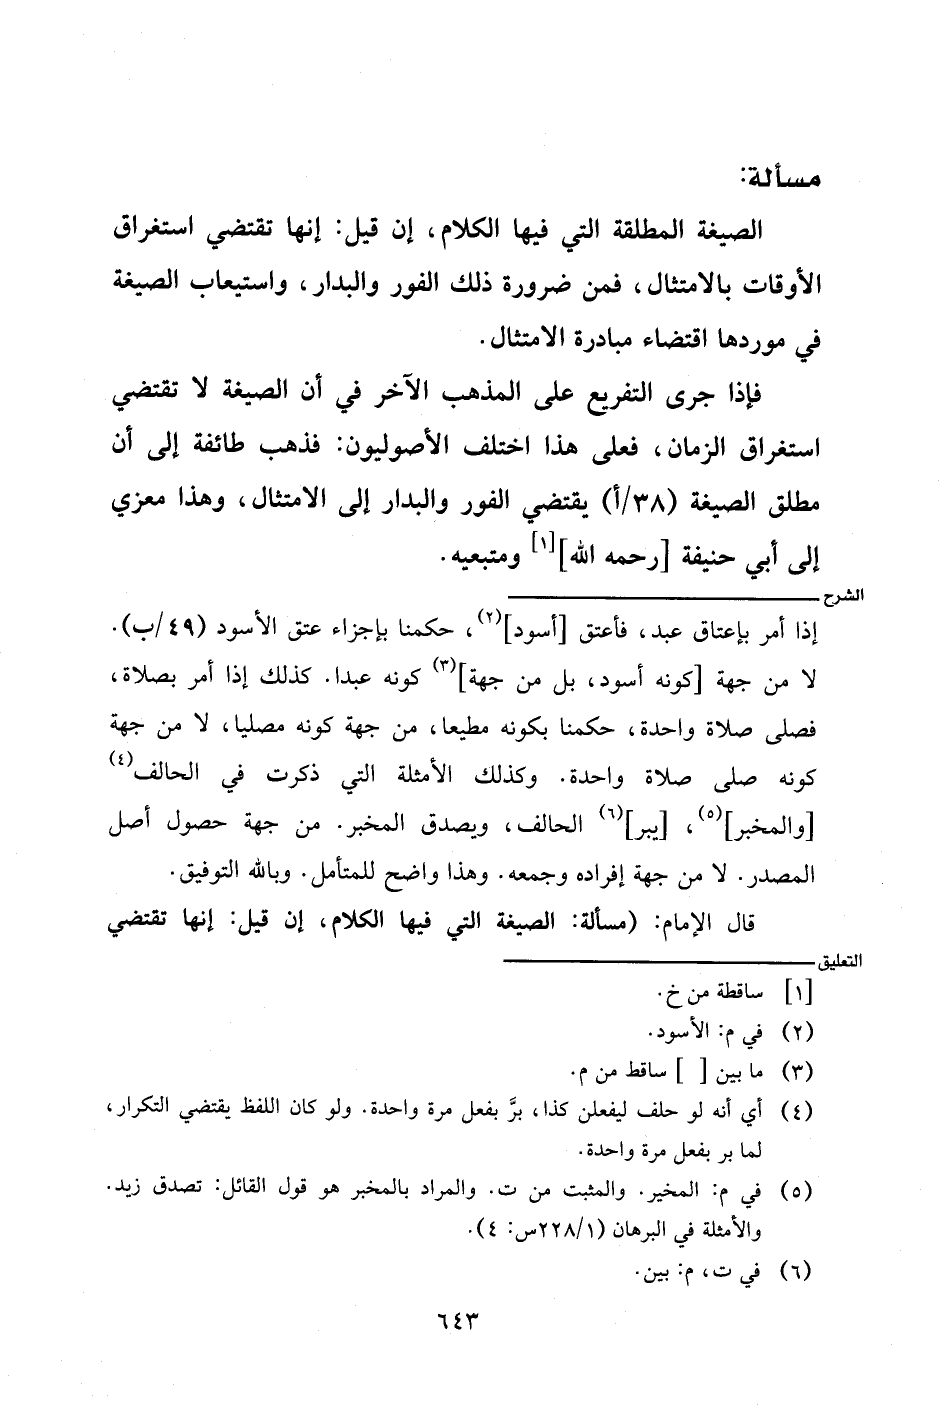 مسألة:
الصيغة المطلقة التي فيها الكلام، إن قيل: إنها تقتضي استغراق
الأوقات بالامتثال، فمن ضرورة ذلك الفور والبدار، واستيعاب الصيغة
في موردها اقتضاء مبادرة الامتثال.
فإذا جرى التفريع على المذهب الآخر في أن الصيغة لا تقتضي
استغراق الزمان، فعلى هذا اختلف الأصوليون: فذهب طائفة إلى أن
مطلق الصيغة (٣٨/أ) يقتضي الفور والبدار إلى الامتثال، وهذا معزي
إلى أبي حنيفة [رحمه الله][١] ومتبعيه.
الشرح
إذا أمر بإعتاق عبد، فأعتق [أسود](٢)، حكمنا بإجزاء عتق الأسود (٤٩/ب).
لا من جهة [كونه أسود، بل من جهة](٣) كونه عبدا. كذلك إذا أمر بصلاة،
فصلى صلاة واحدة، حكمنا بكونه مطيعا، من جهة كونه مصليا، لا من جهة
كونه صلى صلاة واحدة. وكذلك الأمثلة التي ذكرت في الحالف(٤)
[والمخبر](٥)، [يبر](٦) الحالف، ويصدق المخبر. من جهة حصول أصل
المصدر. لا من جهة إفراده وجمعه. وهذا واضح للمتأمل. وبالله التوفيق.
قال الإمام: (مسألة: الصيغة التي فيها الكلام، إن قيل: إنها تقتضي
التعليق
[١] ساقطة من خ.
(٢) في م: الأسود.
(٣) ما بين [ ] ساقط من م.
(٤) أي أنه لو حلف ليفعلن كذا، برَّ بفعل مرة واحدة. ولو كان اللفظ يقتضي التكرار،
لما بر بفعل مرة واحدة.
(٥) في م: المخير. والمثبت من ت. والمراد بالمخبر هو قول القائل: تصدق زيد.
والأمثلة في البرهان (٢٢٨/١س: ٤).
(٦) في ت، م: بين.
٦٤٣